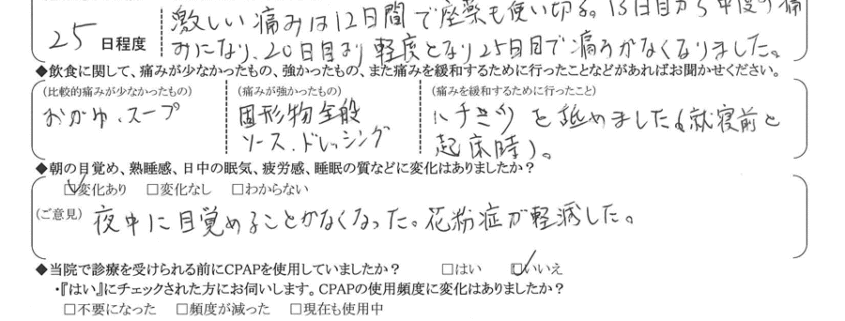 激しい痛みは12日間で座薬も使い切る。13日目から中度の痛
25 日程度 みになり、20日目より軽度となり25日目で痛みがなくなりました。
◆飲食に関して、痛みが少なかったもの、強かったもの、また痛みを緩和するために行ったことなどがあればお聞かせください。
(比較的痛みが少なかったもの) (痛みが強かったもの) (痛みを緩和するために行ったこと)
おかゆ、スープ 固形物全般 ハチミツを舐めました(就寝前と
ソース、ドレッシング 起床時)。
◆朝の目覚め、熟睡感、日中の眠気、疲労感、睡眠の質などに変化はありましたか?
☑変化あり □変化なし □わからない
(ご意見) 夜中に目覚めることがなくなった。花粉症が軽減した。
◆当院で診療を受けられる前にCPAPを使用していましたか? □はい ☑いいえ
・『はい』にチェックされた方にお伺いします。CPAPの使用頻度に変化はありましたか?
□不要になった □頻度が減った □現在も使用中